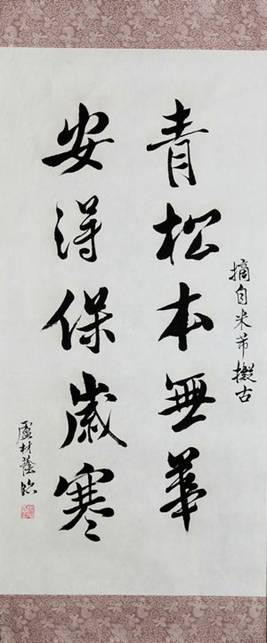 青松本無華
安得保歲寒
摘自米芾擬古
盧村蔭